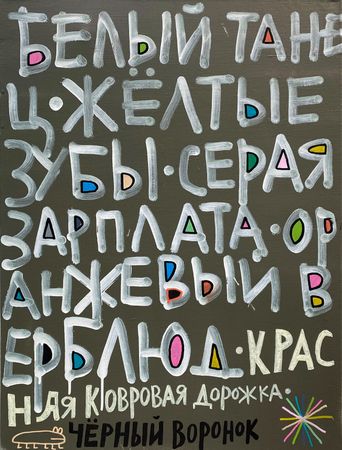 БЕЛЫЙ ТАНЕ
Ц·ЖЁЛТЫЕ
ЗУБЫ·СЕРАЯ
ЗАРПЛАТА·ОР
АНЖЕВЫЙ В
ЕРБЛЮД·КРАС
НАЯ КОВРОВАЯ ДОРОЖКА·
ЧЁРНЫЙ ВОРОНОК